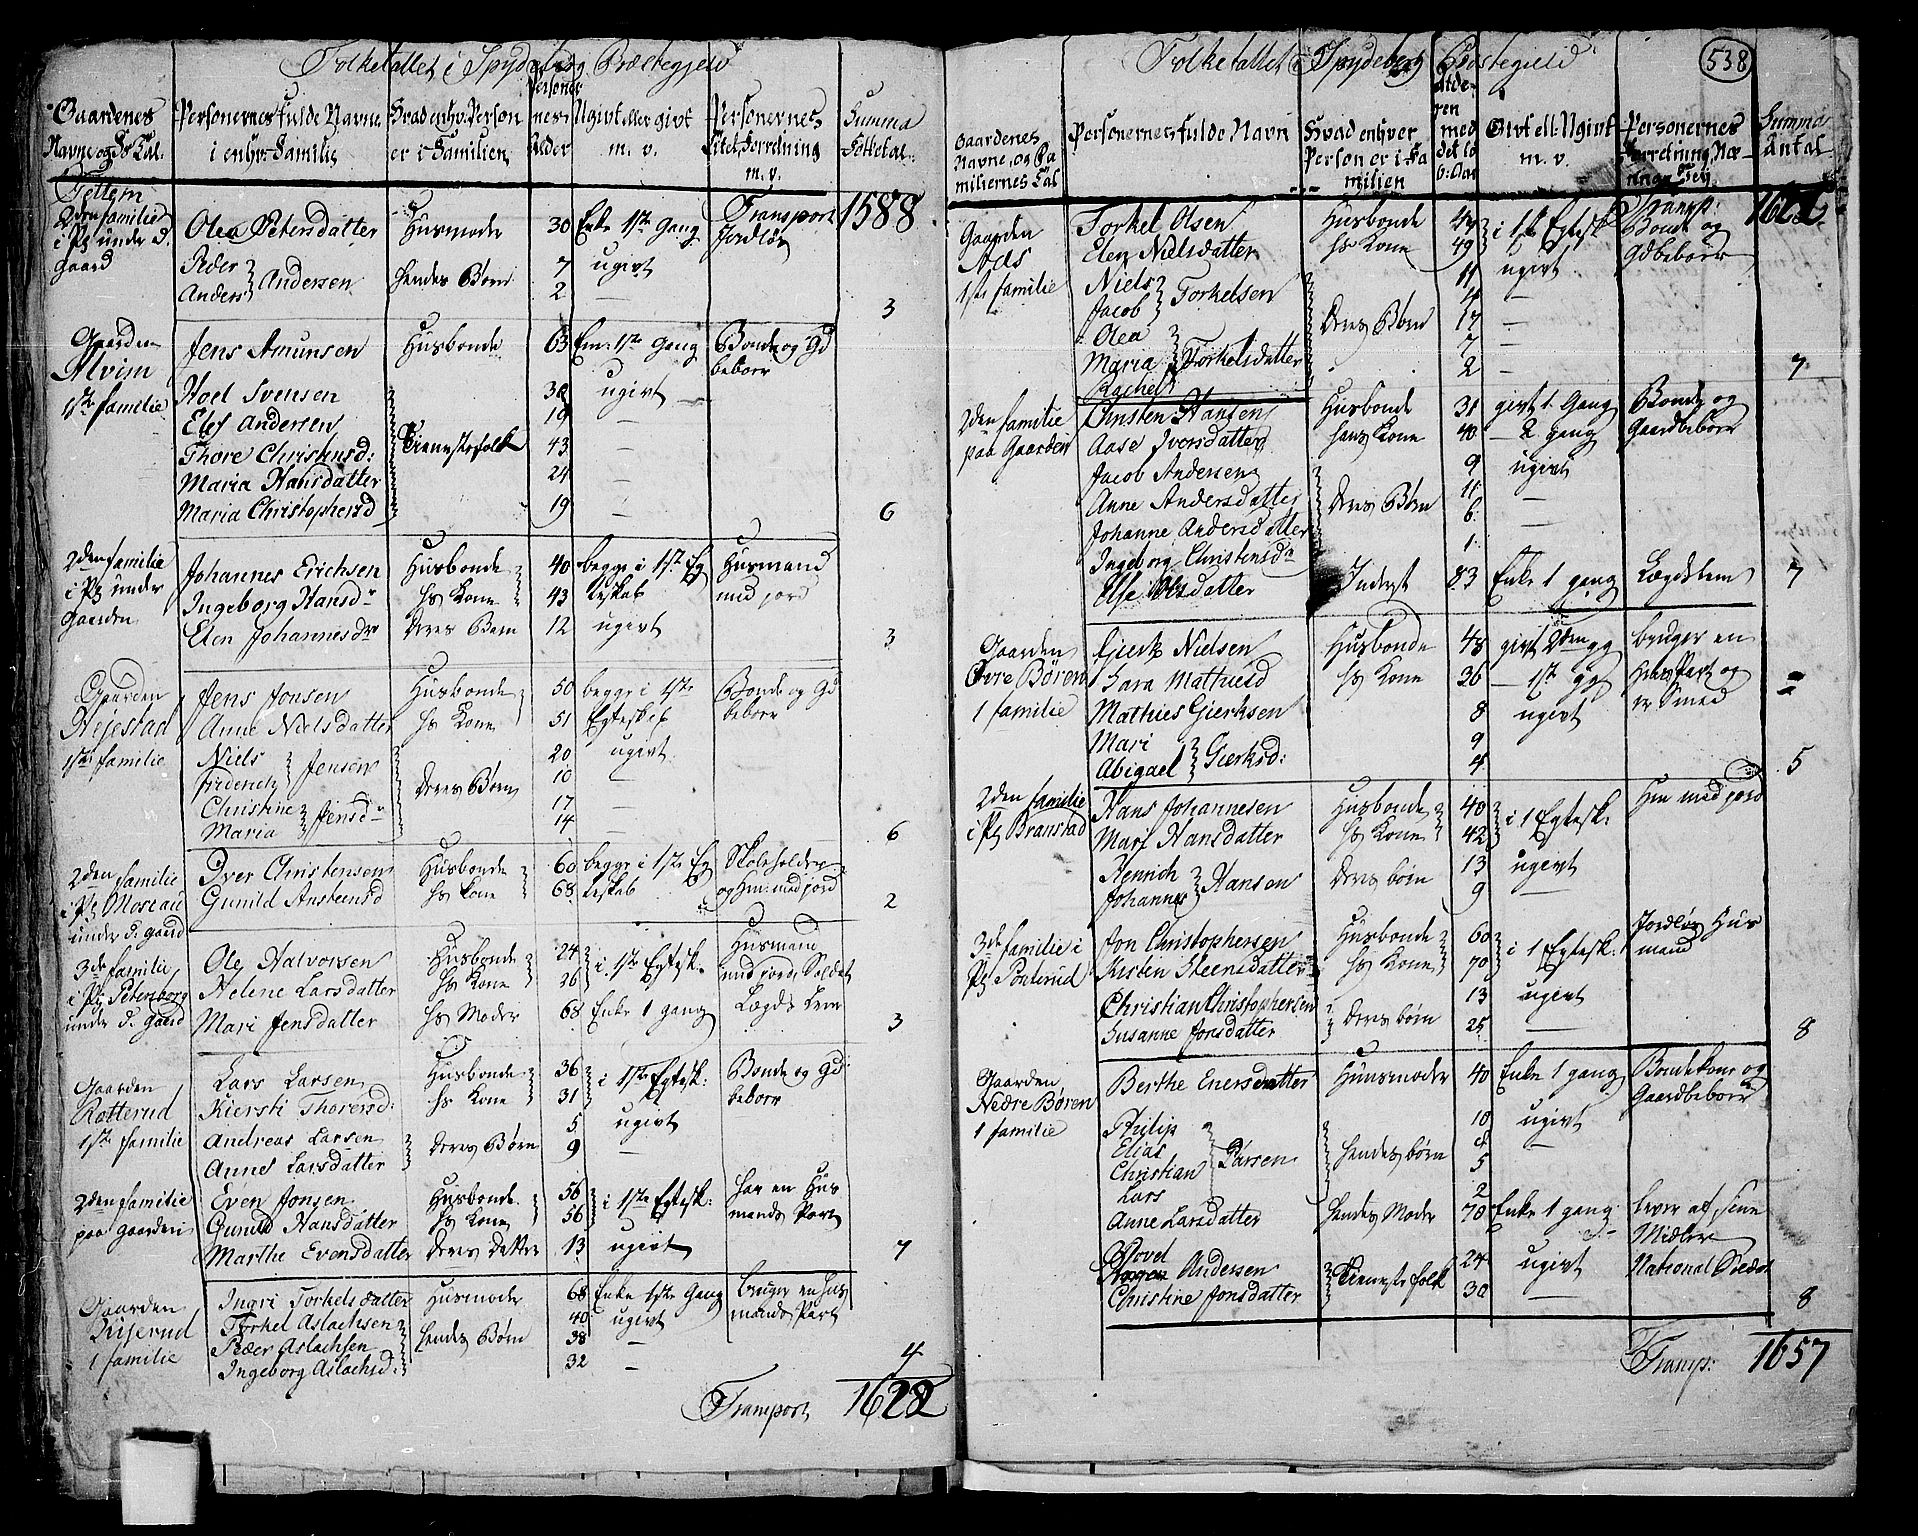 Folketallet i Spydeberg Præstegjeld
Gaardenes Navne og Fa Tal. | Personernes fulde Navne i enhver Familie | Hvad enhv. Person er i Familien | Personernes Alder | Ugivt eller givt m. v. | Personernes Titel, Forretning m. v. | Summa Folketal:
Transport 1588
2den familie i Pl under d. gaard
Olea Petersdatter | Husmoder | 30 | Enke 1ste Gang | Jordløs
Peder } Andersen | hendes Børn | 7 | ugivt
Anders } | 2 | —
3
Gaarden Alvim 1ste familie
Jens Amunsen | Husbonde | 63 | Em: 1ste Gang | Bonde og Gd beboer
Noel Svensen | 38 | ugivt
Elef Andersen | 19 | —
Thore Christensd: | Tienestefolk | 43 | —
Maria Hansdatter | 24 | —
Maria Christophersd | 19 | —
6
2den familie i Pl under Gaarden
Johannes Erichsen | Husbonde | 40 | begge i 1ste Eg | Husmand
Ingeborg Hansdr | hs Kone | 43 | teskab | med jord
Elen Johannesdr | deres Barn | 12 | ugivt
3
Gaarden 1ste familie
Jens Jonsen | Husbonde | 50 | begge i 1ste | Bonde og Gd
Anne Nielsdatter | hs Kone | 51 | Egteskb | beboer
Niels } Jensen | 20 | ugivt
Friderich } | deres Børn | 10 | —
Christine } Jensdr | 17 | —
Maria } | 14 | —
6
2den familie i Pl under d. gaard
Iver Christensen | Husbonde | 60 | begge i 1ste Eg | Skoleholder
Gunild Ansteensd | hs Kone | 68 | teskab | og Hm: med jord
2
3de familie i Pl Petersborg under d. gaard
Ole Halvorsen | Husbonde | 24 | i 1ste Egtesk. | Husmand
Helene Larsdatter | hs Kone | 26 | med jord Soldat
Mari Jensdatter | hs Moder | 68 | Enke 1 gang | Lægds Lem
3
Gaarden Rotterud 1ste familie
Lars Larsen | Husbonde | 36 | i 1ste Egtesk: | Bonde og Gd:
Kiersti Thoresd: | hs Kone | 31 | beboer
Andreas Larsen | deres Børn | 5 | ugivt
Anne Larsdatter | 9 | —
2den familie paa gaarden
Even Jonsen | Husbonde | 56 | i 1ste Egtesk: | har en Hus
Gunild Hansdatter | hs Kone | 56 | mands Part
Marthe Evensdatter | deres Datter | 13 | ugivt
7
Gaarden 1 familie
Ingri Torkelsdatter | Husmoder | 68 | Enke 1ste Gang | bruger en hus
Torkel Aslachsen | 40 | ugivt | mands Part
Peder Aslachsen | hendes Børn | 38 | —
Ingeborg Aslachsd: | 32 | —
4
Transport 1622
538
Folketallet i Spydeberg Præstegield
Gaardenes Navne, og Fa miliernes Tal | Personernes fulde Navn | Hvad enhver Person er i Fa milien | Givt ell: Ugivt m. v. | Personernes Forretning | Summa Antal
Transp: 1622
Gaarden 1ste familie
Torkel Olsen | Husbonde | i 1ste Egtesk | Bonde og
Elen Nielsdatter | hs Kone | 49 | Gdbeboer
Niels } Torkelsen | 11 | ugivt
Jacob } | 4 | —
Olea } | deres Børn | 17 | —
Maria } Torkelsdatter | 7 | —
Rachel } | 2 | —
7
2den familie paa Gaarden
Christen Hansen | Husbonde | 31 | givt 1 Gang | Bonde og
Aase Iversdatter | hans Kone | 40 | — 2 gang | Gaardbeboer
Jacob Andersen | 9 | ugivt
Anne Andersdatter | deres Børn | 11 | —
Johanne Andersdatter | 6 | —
Ingeborg Christensdr | 1
Else Olsdatter | Inderst | 83 | Enke 1 gang | Lægdslem
7
Gaarden Øvre Børen 1 familie
Gierk Nielsen | Husbonde | 48 | givt 2den gg | bruger en
Sara Mathiesd | hs Kone | 36 | — 1st gg | Part og
Mathies Gierksen | 8 | ugivt | er Smed
Mari } Gierksd: | 9
Abigael } | 4
5
2den familie i Pl Branstad
Hans Johannesen | Husbonde | 40 | i 1 Egtesk: | Hm med jord
Mari Hansdatter | hs Kone | 42
Henrich } Hansen | deres børn | 13 | ugivt
Johannes } | 9 | —
3de familie i Pl
Jon Christophersen | Husbonde | 60 | i 1 Egtesk: | Jordløs Hus
Kirstin Steensdatter | hs Kone | 70 | mand
Christian Christophersen | deres børn | 13 | ugivt
Susanne Jonsdatter | 25 | —
8
Gaarden Nedre Børen 1 familie
Berthe Enersdatter | Huusmoder | 40 | Enke 1 gang | Bondekone og
Gaardbeboer
Philip } | 10 | ugivt
Elias } Larsen | hendes børn | 8 | —
Christian } | 5
Lars } | 2
Anne Larsdatter | hendes Moder | 70 | Enke 1 gang | lever af sine Midler
Povel Andersen | Tienestefolk | 24 | ugivt | National Soldat
Christine Jonsdatter | 30 | —
8
Transp: 1657